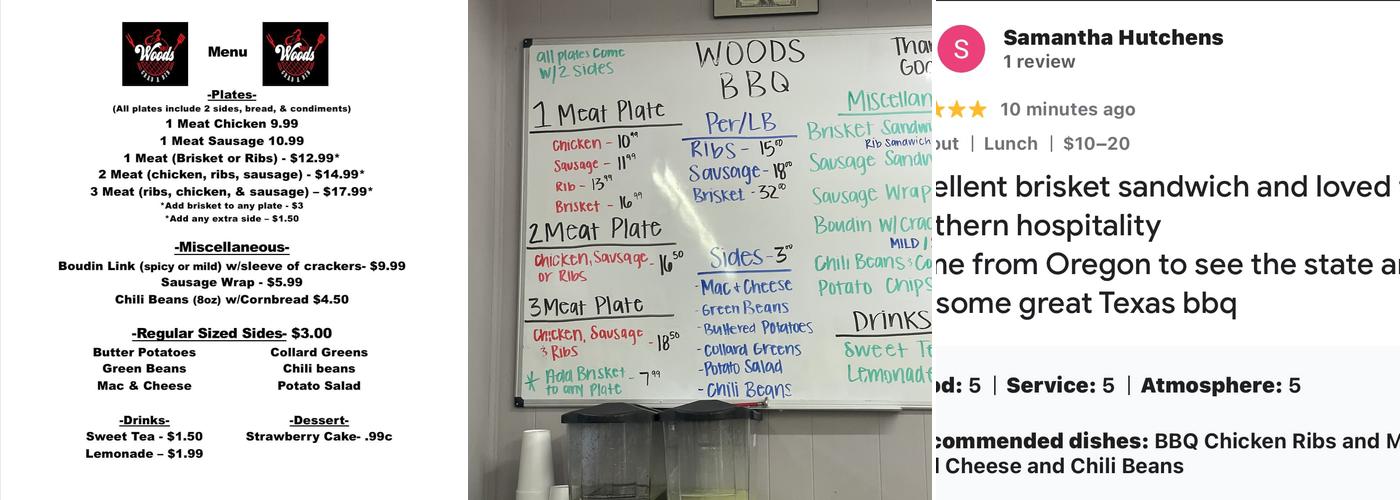 Woods
Menu
Woods
-Plates-
(All plates include 2 sides, bread, & condiments)
1 Meat Chicken 9.99
1 Meat Sausage 10.99
1 Meat (Brisket or Ribs) - $12.99*
2 Meat (chicken, ribs, sausage) - $14.99*
3 Meat (ribs, chicken, & sausage) – $17.99*
*Add brisket to any plate - $3
*Add any extra side – $1.50
-Miscellaneous-
Boudin Link (spicy or mild) w/sleeve of crackers- $9.99
Sausage Wrap - $5.99
Chili Beans (8oz) w/Cornbread $4.50
-Regular Sized Sides- $3.00
Butter Potatoes
Green Beans
Mac & Cheese
Collard Greens
Chili beans
Potato Salad
-Drinks-
Sweet Tea - $1.50
Lemonade – $1.99
-Dessert-
Strawberry Cake- .99c
all plates come
w/2 sides
WOODS
BBQ
1 Meat Plate
Chicken - 10.99
Sausage - 11.99
Rib - 13.99
Brisket - 16.99
2 Meat Plate
Chicken, Sausage - 16.50
or Ribs
3 Meat Plate
Chicken, Sausage - 18.50
& Ribs
* Add Brisket - 7.99
to any Plate
Per/LB
Ribs - 15.00
Sausage - 18.00
Brisket - 32.00
Sides - 3.00
- Mac + Cheese
- Green Beans
- Buttered Potatoes
- Collard Greens
- Potato Salad
- Chili Beans
Than
GOD
Miscellan
Brisket Sandw
Rib Sandwich
Sausage Sandw
Sausage Wrap
Boudin w/Crac
MILD /
Chili Beans & Co
Potato Chips
Drinks
Sweet Te
Lemonade
S
Samantha Hutchens
1 review
10 minutes ago
out | Lunch | $10–20
ellent brisket sandwich and loved
thern hospitality
ne from Oregon to see the state a
some great Texas bbq
od: 5 | Service: 5 | Atmosphere: 5
commended dishes: BBQ Chicken Ribs and M
l Cheese and Chili Beans